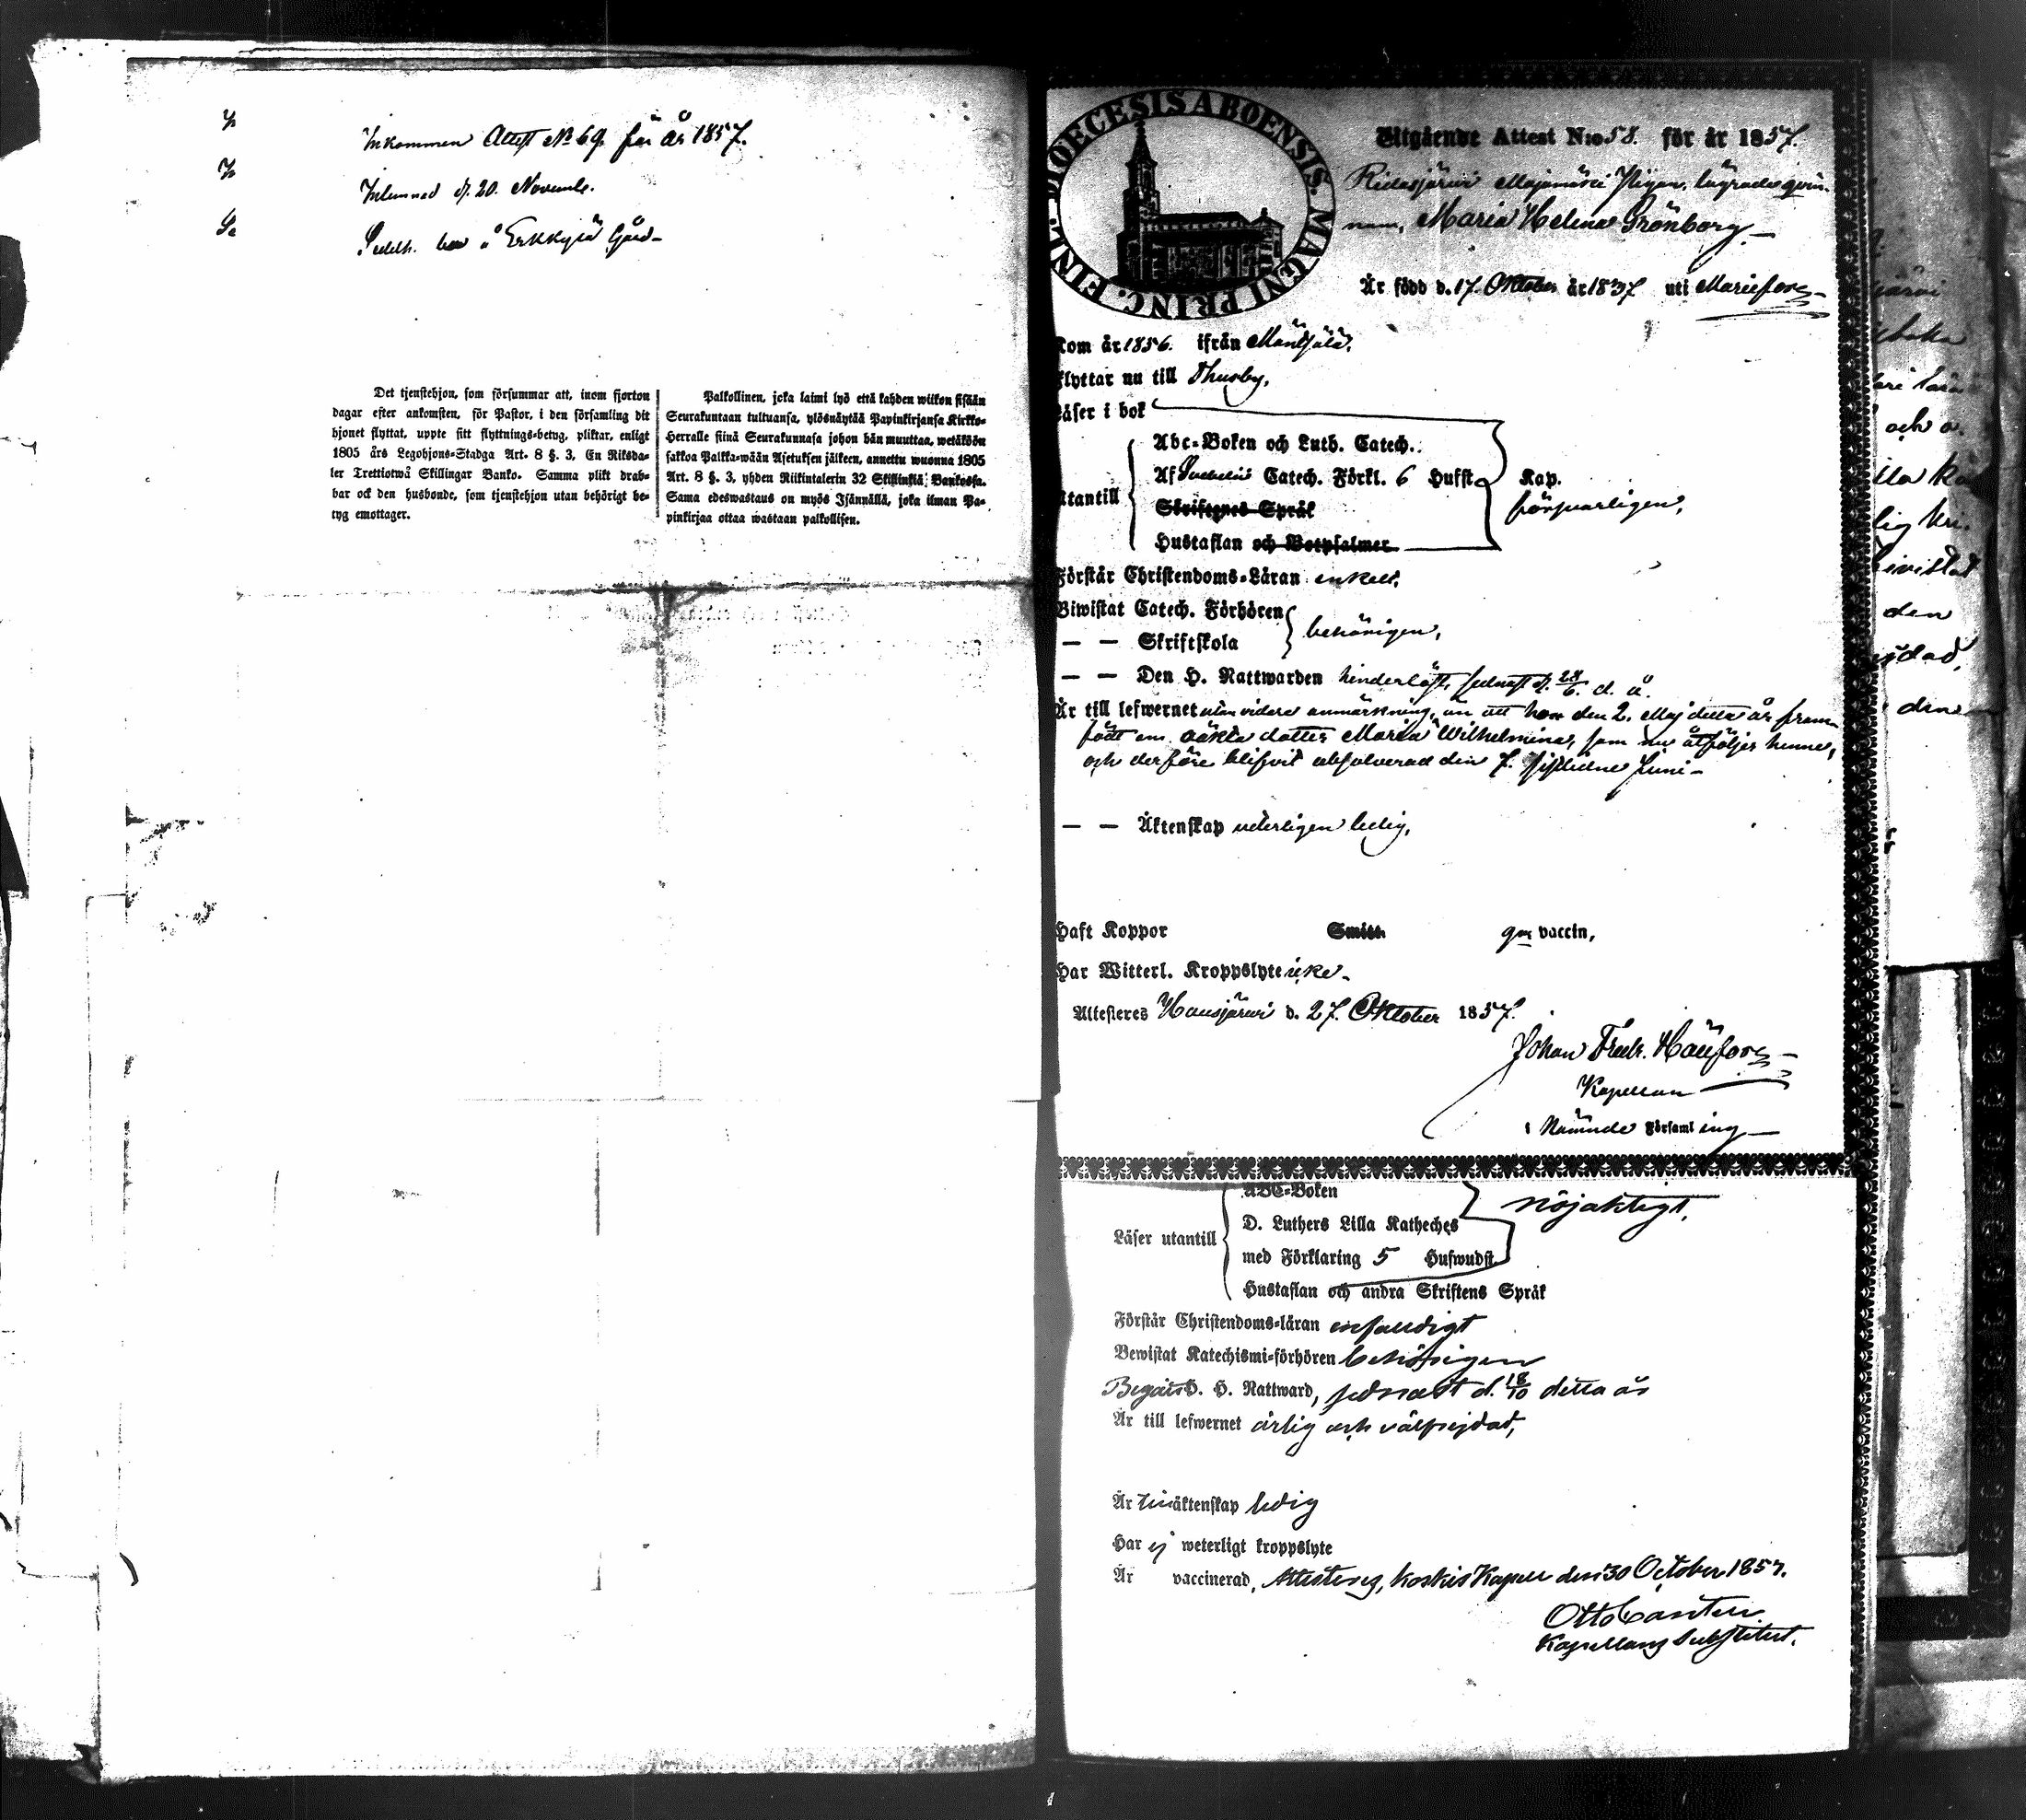 Inkommen Attest No 69. för år 1857.
Inlemnad d. 20. Novemb.
å Erkkylä Gård
Det tjenstehjon, som försummar att, inom fjorton
dagar efter ankomsten, för Pastor, i den församling dit
hjonet flyttat, uppte sitt flyttnings-betyg, pliktar, enligt
1805 års Legohjons-Stadga Art. 8 §. 3, En Riksda-
ler Trettiotwå Skillingar Banko. Samma plikt drab-
bar ock den husbonde, som tjenstehjon utan behörigt be-
tyg emottager.
Palkollinen, joka laimi lyö että kahden wiikon sisään
Seurakuntaan tultuansa, ylösnäytää Papinkirjansa Kirkko-
Herralle siinä Seurakunnasa johon hän muuttaa, wetäköön
sakkoa Palkka-wään Asetuksen jälkeen, annettu wuonna 1805
Art. 8 §. 3, yhden Riikintalerin 32 Skillinkiä Bankossa.
Sama edeswastaus on myös Isännällä, joka ilman Pa-
pinkirjaa ottaa wastaan palkollisen.
FINL. DIOECESIS ABOENSIS. MAGNI PRINC.
Utgående Attest N:o 58. för år 1857.
Ridasjärvi
nan, Maria Helena Grönborg.
Är född d. 17. Oktober år 1837 uti Mariefors
Kom år 1856. ifrån Mäntsälä.
Flyttar nu till Thusby.
Läser i bok
Utantill
Abc-Boken och Luth. Catech.
Af Catech. Förkl. 6 Hufst. Kap.
försvarligen,
Skriftenes Språk
Hustaflan och Botpsalmer
Förstår Christendoms-Läran enkelt.
Biwistat Catech. Förhören
— — Skriftskola
behörigen,
— — Den H. Nattwarden hinderlöst, sednast d. 28/6. d. å.
Är till lefwernet utan vidare anmärkning, än att hon den 2. Maj detta år fram-
födt en oäkta dotter Maria Wilhelmina, som nu åtföljer henne,
och derföre blifvit absolverad den 7. sistledne Juni
— — Äktenskap veterligen ledig.
Haft Koppor Smitt. gm vaccin,
Har Witterl. Kroppslyte icke
Attesteres Hausjärvi d. 27. Oktober 1857.
Johan Fredr.
Kapellan
i Nämnde Församling
ABC-Boken
Läser utantill
D. Luthers Lilla Katheches
med Förklaring 5 Hufwudst.
nöjaktigt.
Hustaflan och andra Skriftens Språk
Förstår Christendoms-läran enfaldigt
Bewistat Katechismi-förhören behörigen
Begått D. H. Nattward, sednast d. 18/10 detta år
Är till lefwernet ärlig och välfrejdad,
Är till äktenskap ledig
Har ej weterligt kroppslyte
Är vaccinerad, Attesteras, Koskis Kapell den 30 October 1857.
Otto
Kapellans Substitut.